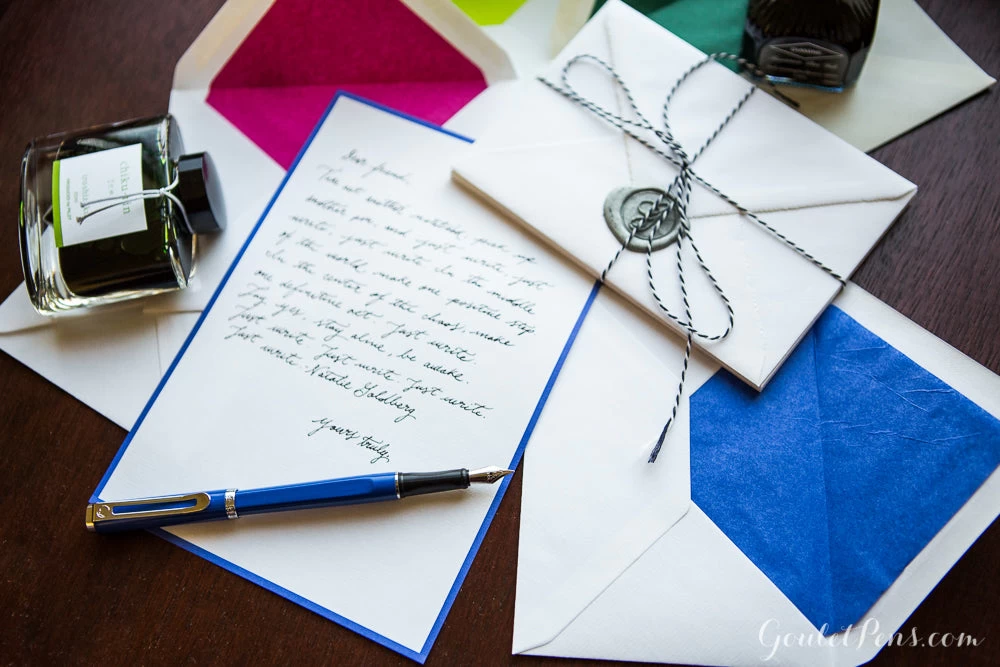 chiku-rin
Dear friend,
Take out another notebook, pick up
another pen, and just write, just
write, just write. In the middle
of the world, make one positive step
In the center of the chaos, make
one definitive act. Just write
Say yes, stay alive, be awake.
Just write. Just write. Just write.
Just write. Natalie Goldberg
Yours truly,
GouletPens.com